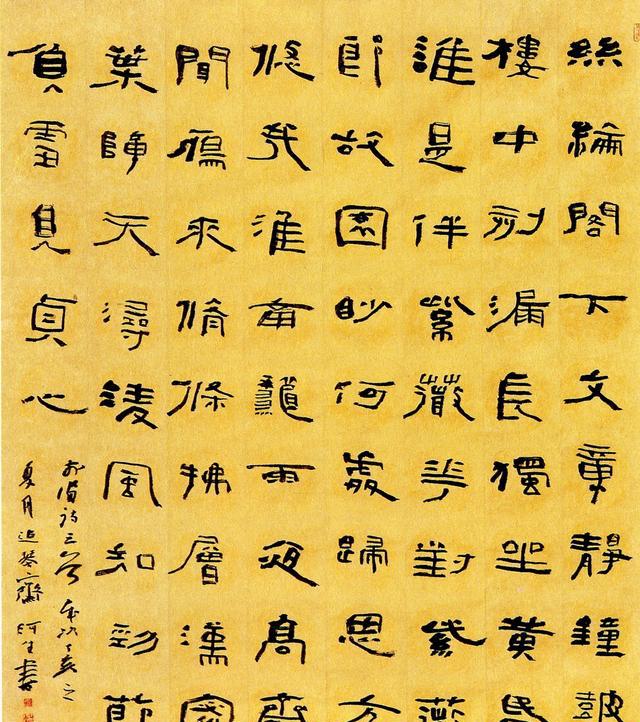 絲綸閣下文章靜鐘鼓
樓中刻漏長獨坐黃昏
誰是伴紫薇花對紫薇
郎故園眇何處歸思方
悠哉淮南龝雨夜高齋
聞鴈來脩條拂層漢密
葉障天潯凌風知勁節
負雪見貞心
詩三首歲次丁亥之
夏月齋書